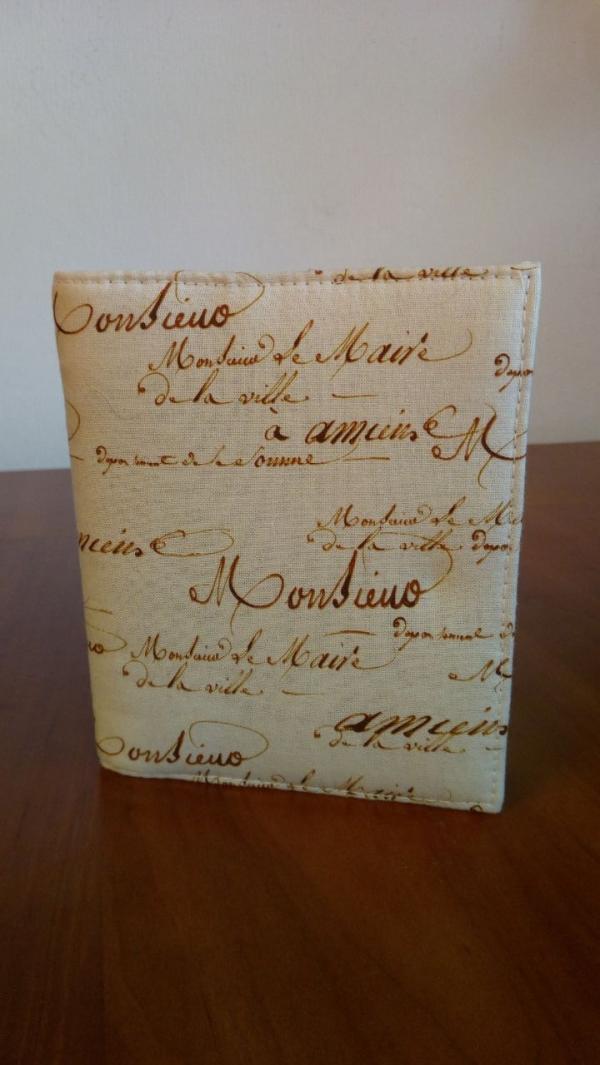 de la ville
Monsieur
Monsieur Le Maire
de la ville
à amiens
M
departement de la Somme
Monsieur Le M
de la ville
amiens
Monsieur
departement de
Monsieur Le Maire
de la ville
M
amiens
de la ville
Monsieur
Monsieur Le Maire